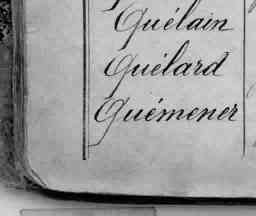 Quélain
Quélard
Quémener